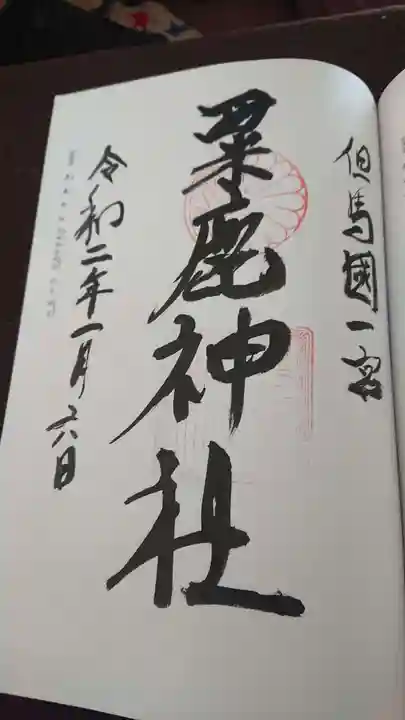 但馬國一宮
粟鹿神社
令和二年一月六日